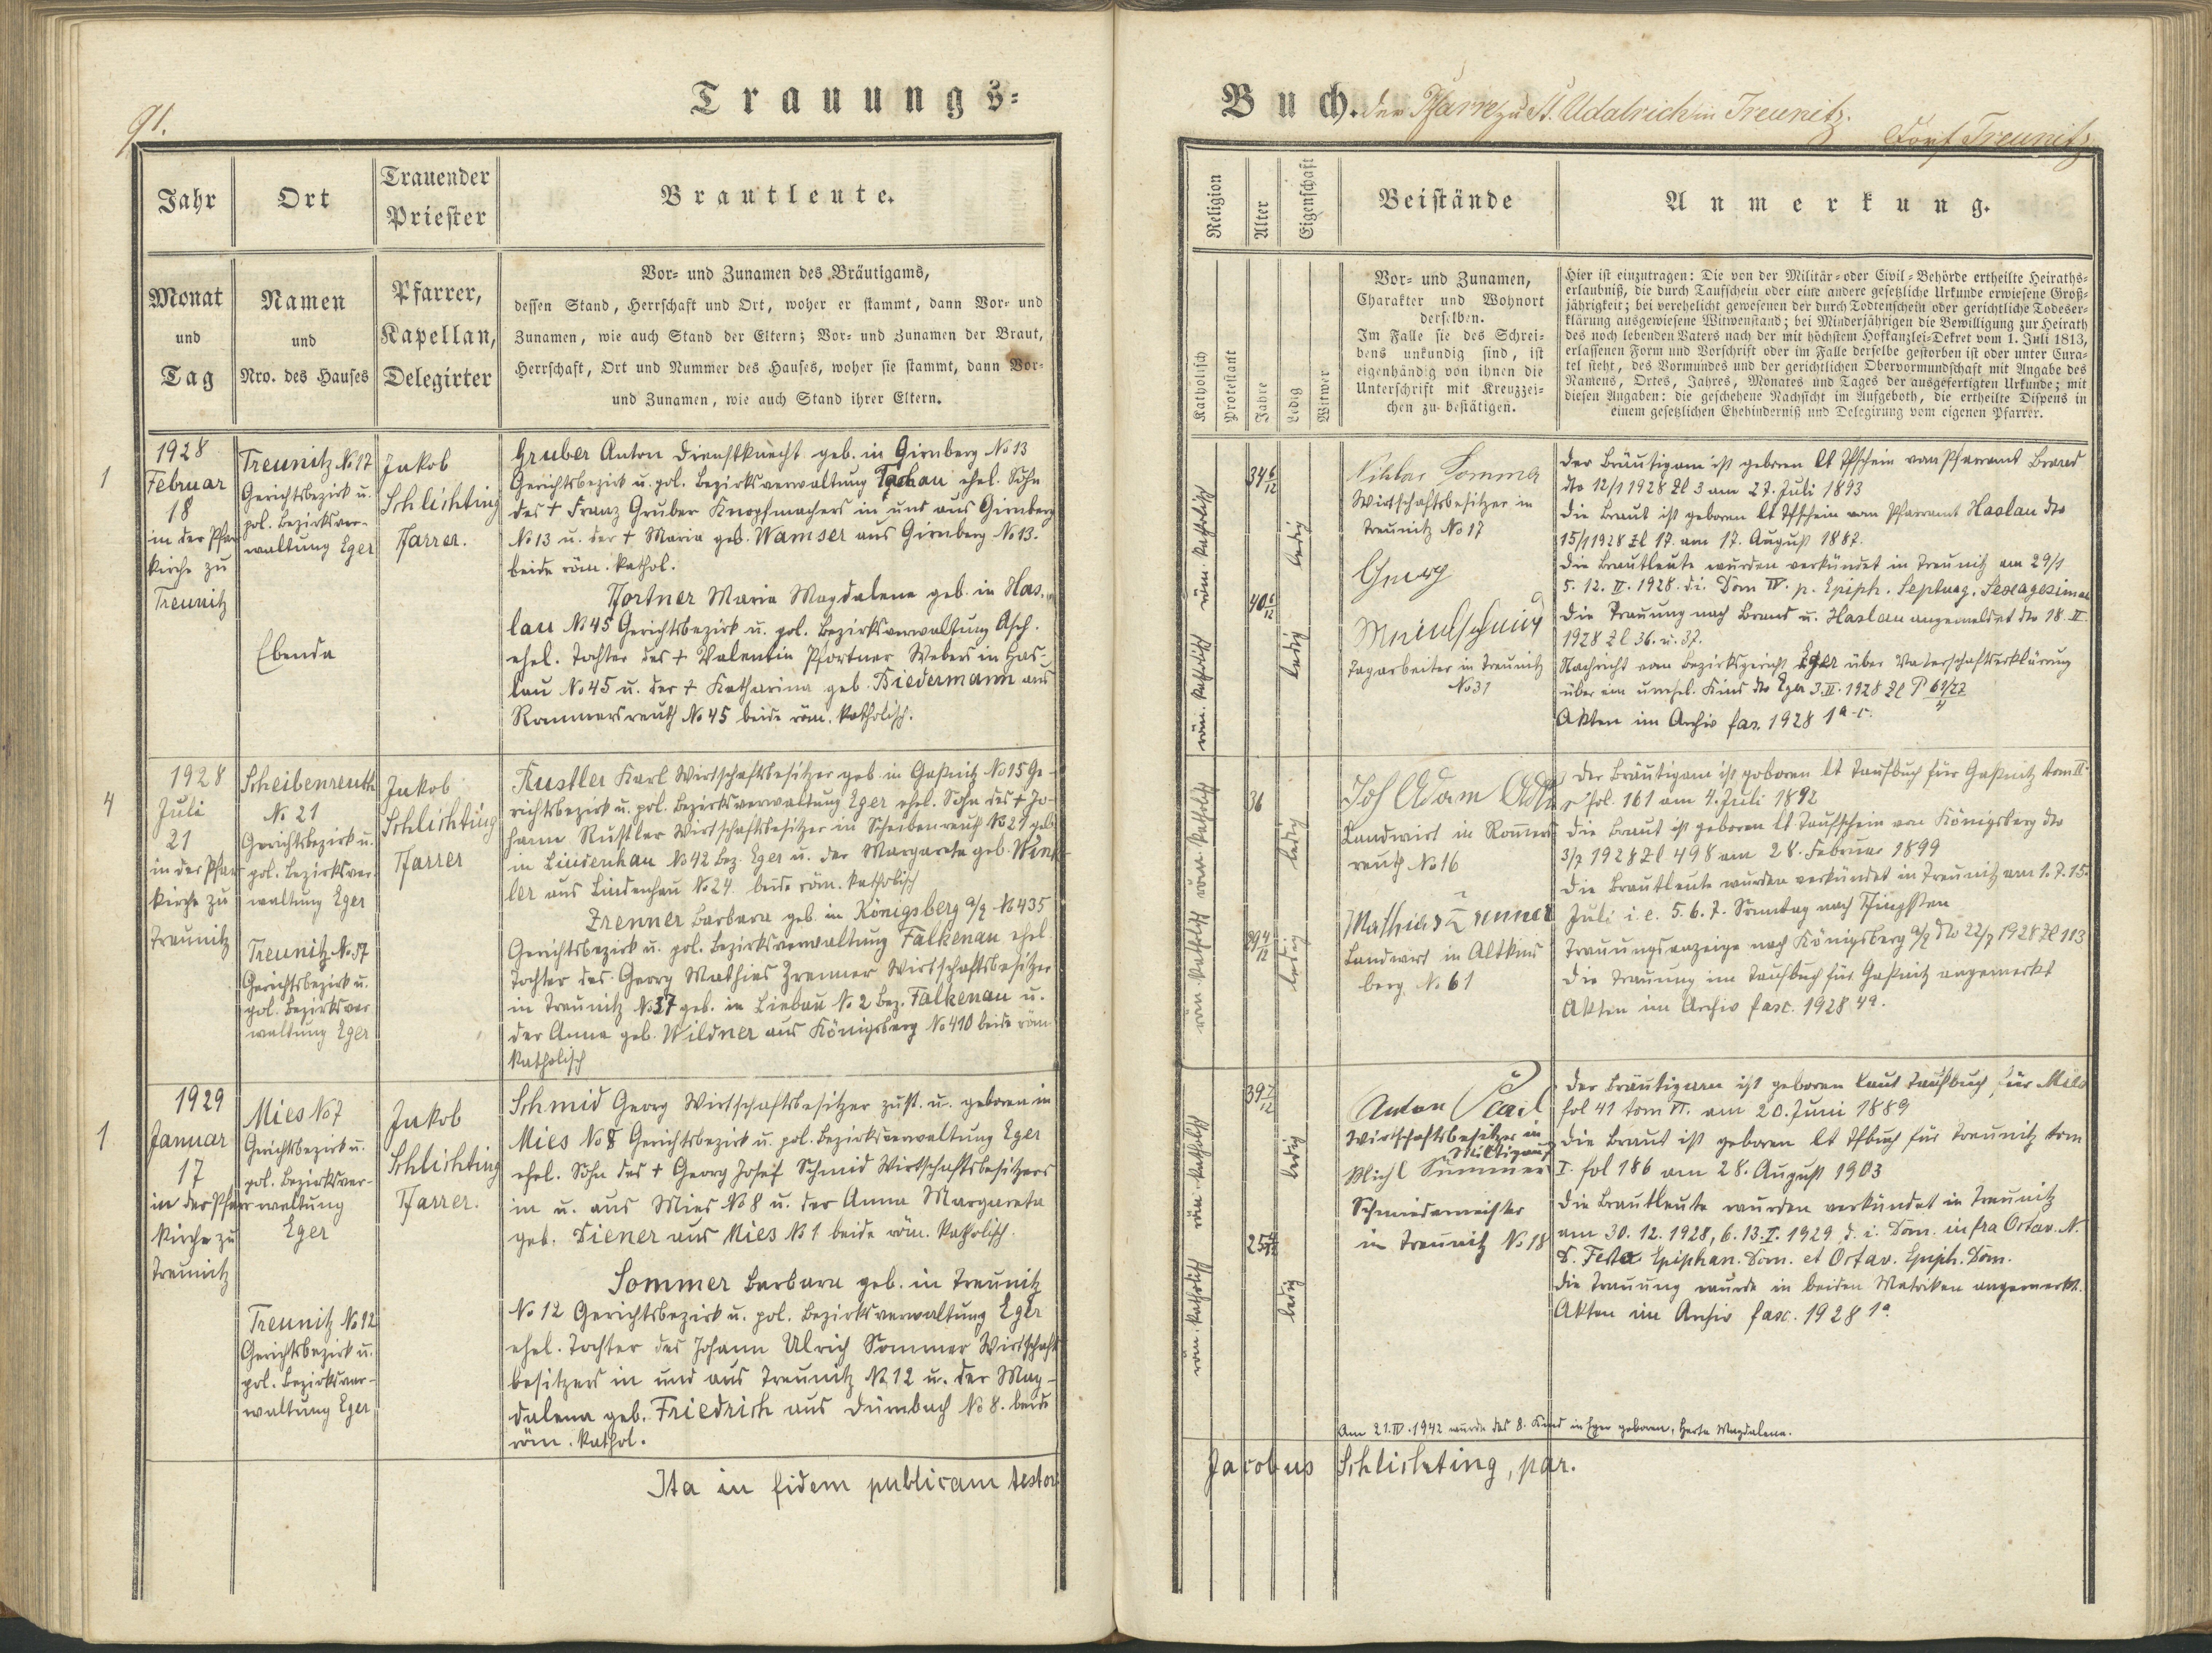 91.
Trauungs=
Jahr
Ort
Trauender
Priester
Brautleute.
Monat
und
Tag
Namen
und
Nro. des Hauses
Pfarrer,
Kapellan,
Delegirter
Vor= und Zunamen des Bräutigams,
dessen Stand, Herrschaft und Ort, woher er stammt, dann Vor= und
Zunamen, wie auch Stand der Eltern; Vor= und Zunamen der Braut,
Herrschaft, Ort und Nummer des Hauses, woher sie stammt, dann Vor=
und Zunamen, wie auch Stand ihrer Eltern.
1
1928
Februar
18
in der Pfar
kirche zu
Treunitz
Treunitz No 17
Gerichtsbezirk u.
pol. Bezirksver-
waltung Eger
Ebenda
Jakob
Schlichting
Pfarrer.
Gruber Anton Dienstknecht geb. in Girnberg No 13
Gerichtsbezirk u. pol. Bezirksverwaltung Tachau ehel. Sohn
des + Franz Gruber Knopfmachers in und aus Girnberg
No 13 u. der + Maria geb. Wamser aus Girnberg No 13.
beide röm. kathol.
Pfortner Maria Magdalena geb. in Has-
lau No 45 Gerichtsbezirk u. pol. Bezirksverwaltung Asch.
ehel. Tochter des + Valentin Pfortner Webers in Has-
lau No 45 u. der + Katharina geb. Biedermann aus
Rommersreuth No 45 beide röm. katholisch.
4
1928
Juli
21
in der Pfar
kirche zu
Treunitz
Scheibenreuth
No 21
Gerichtsbezirk u.
pol. Bezirksver-
waltung Eger
Treunitz No 37
Gerichtsbezirk u.
pol. Bezirksver
waltung Eger
Jakob
Schlichting
Pfarrer
Rustler Karl Wirtschaftsbesitzer geb. in Gaßnitz No 15 Ge-
richtsbezirk u. pol. Bezirksverwaltung Eger ehel. Sohn des + Jo-
hann Rustler Wirtschaftsbesitzer in Scheibenreuth No 21 geb.
in Lindenhau No 42 Bez. Eger u. der Margareta geb. Wink-
ler aus Lindenhau No 24 beide röm. katholisch
Zrenner Barbara geb. in Königsberg a/E No 435
Gerichtsbezirk u. pol. Bezirksverwaltung Falkenau ehel.
Tochter des Georg Mathias Zrenner Wirtschaftsbesitzer
in Treunitz No 37 geb. in Liebau No 2 Bez. Falkenau u.
der Anna geb. Wildner aus Königsberg No 410 beide röm
katholisch
1
1929
Januar
17
in der Pfarr
kirche zu
Treunitz
Mies No 7
Gerichtsbezirk u.
pol. Bezirksver-
waltung
Eger
Treunitz No 12
Gerichtsbezirk u.
pol. Bezirksver-
waltung Eger
Jakob
Schlichting
Pfarrer.
Schmid Georg Wirtschaftsbesitzer zust. u. geboren in
Mies No 8 Gerichtsbezirk u. pol. Bezirksverwaltung Eger
ehel. Sohn des + Georg Josef Schmid Wirtschaftsbesitzers
in u. aus Mies No 8 u. der Anna Margareta
geb. Diener aus Mies No 1 beide röm. katholisch.
Sommer Barbara geb. in Treunitz
No 12 Gerichtsbezirk u. pol. Bezirksverwaltung Eger
ehel. Tochter des Johann Ulrich Sommer Wirtschafts
besitzers in und aus Treunitz No 12 u. der Mag-
dalena geb. Friedrich aus Dürnbach No 8. beide
röm. kathol.
Ita in fidem publicam testor
Buch. der Pfarre zu St. Udalrich in Treunitz.
Dorf Treunitz
Religion
Alter
Eigenschaft
Beistände
Anmerkung.
Katholisch
Protestant
Jahre
Ledig
Witwer
Vor= und Zunamen,
Charakter und Wohnort
derselben.
Im Falle sie des Schrei=
bens unkundig sind, ist
eigenhändig von ihnen die
Unterschrift mit Kreuzzei=
chen zu bestätigen.
Hier ist einzutragen: Die von der Militär= oder Civil=Behörde ertheilte Heiraths=
erlaubniß, die durch Taufschein oder eine andere gesetzliche Urkunde erwiesene Groß=
jährigkeit; bei verehelicht gewesenen der durch Todtenschein oder gerichtliche Todeser=
klärung ausgewiesene Witwenstand; bei Minderjährigen die Bewilligung zur Heirath
des noch lebenden Vaters nach der mit höchstem Hofkanzlei=Dekret vom 1. Juli 1813,
erlassenen Form und Vorschrift oder im Falle derselbe gestorben ist oder unter Cura=
tel steht, des Vormundes und der gerichtlichen Obervormundschaft mit Angabe des
Namens, Ortes, Jahres, Monates und Tages der ausgefertigten Urkunde; mit
diesen Angaben: die geschehene Nachsicht im Aufgeboth, die ertheilte Dispens in
einem gesetzlichen Ehehinderniß und Delegirung vom eigenen Pfarrer.
röm. katholisch
röm. katholisch
34 6/12
40 6/12
ledig
ledig
Sommer
Wirtschaftsbesitzer in
Treunitz No 17
Georg
Tagarbeiter in Treunitz
No 31
Der Bräutigam ist geboren lt Tfschein vom Pfarramt Brand
dto 12/1 1928 Zl 3 am 27. Juli 1893
Die Braut ist geboren lt Tfschein vom Pfarramt Haslau dto
15/1 1928 Zl 17. am 17. August 1887.
Die Brautleute wurden verkündet in Treunitz am 29/1
5. 12. II. 1928. d.i. Dom IV. p. Epiph. Septuag. Sexagesimae
Die Trauung nach Brand u. Haslau angemeldet dto 18. II.
1928 Zl 36. u. 37.
Nachricht vom Bezirksgericht Eger über Vaterschaftserklärung
über ein unehel. Kind dto Eger 3. II. 1928 Zl P 69/27
Akten im Archiv fas. 1928 1a-c.
röm. katholisch
röm. katholisch
36
29 4/12
ledig
ledig
Joh Adam Adler
Landwirt in Rommers
reuth No 16
Mathias Zrenner
Landwirt in Altkins
berg No 61
Der Bräutigam ist geboren lt Taufbuch für Gaßnitz tom II.
fol. 161 am 4. Juli 1892
Die Braut ist geboren lt Taufschein von Königsberg dto
3/7 1928 Zl 498 am 28. Februar 1899
Die Brautleute wurden verkündet in Treunitz am 1. 7. 15.
Juli i. e. 5. 6. 7. Sonntag nach Pfingsten
Trauungsanzeige nach Königsberg a/E dto 22/7 1928 Zl 113
Die Trauung im Taufbuch für Gaßnitz angemerkt
Akten im Archiv fasc. 1928 4a.
röm. katholisch
röm. katholisch
39 7/12
ledig
ledig
Anton
Wirtschaftsbesitzer in
Michl Summer
Schmiedemeister
in Treunitz No 18
Der Bräutigam ist geboren laut Taufbuch für Mies
fol 41 tom VI. am 20. Juni 1889
Die Braut ist geboren lt Tfbuch für Treunitz tom
I. fol 186 am 28. August 1903
Die Brautleute wurden verkündet in Treunitz
am 30. 12. 1928, 6. 13. I. 1929. d. i. Dom. infra Octav. N.
D. Festa Epiphan. Dom. et Octav. Epiph. Dom.
Die Trauung wurde in beiden Matriken angemerkt.
Akten im Archiv fasc. 1928 1a
Am 21. IV. 1942 wurde das 8. Kind in Eger geboren, Herta Magdalena.
Jacobus Schlichting, par.